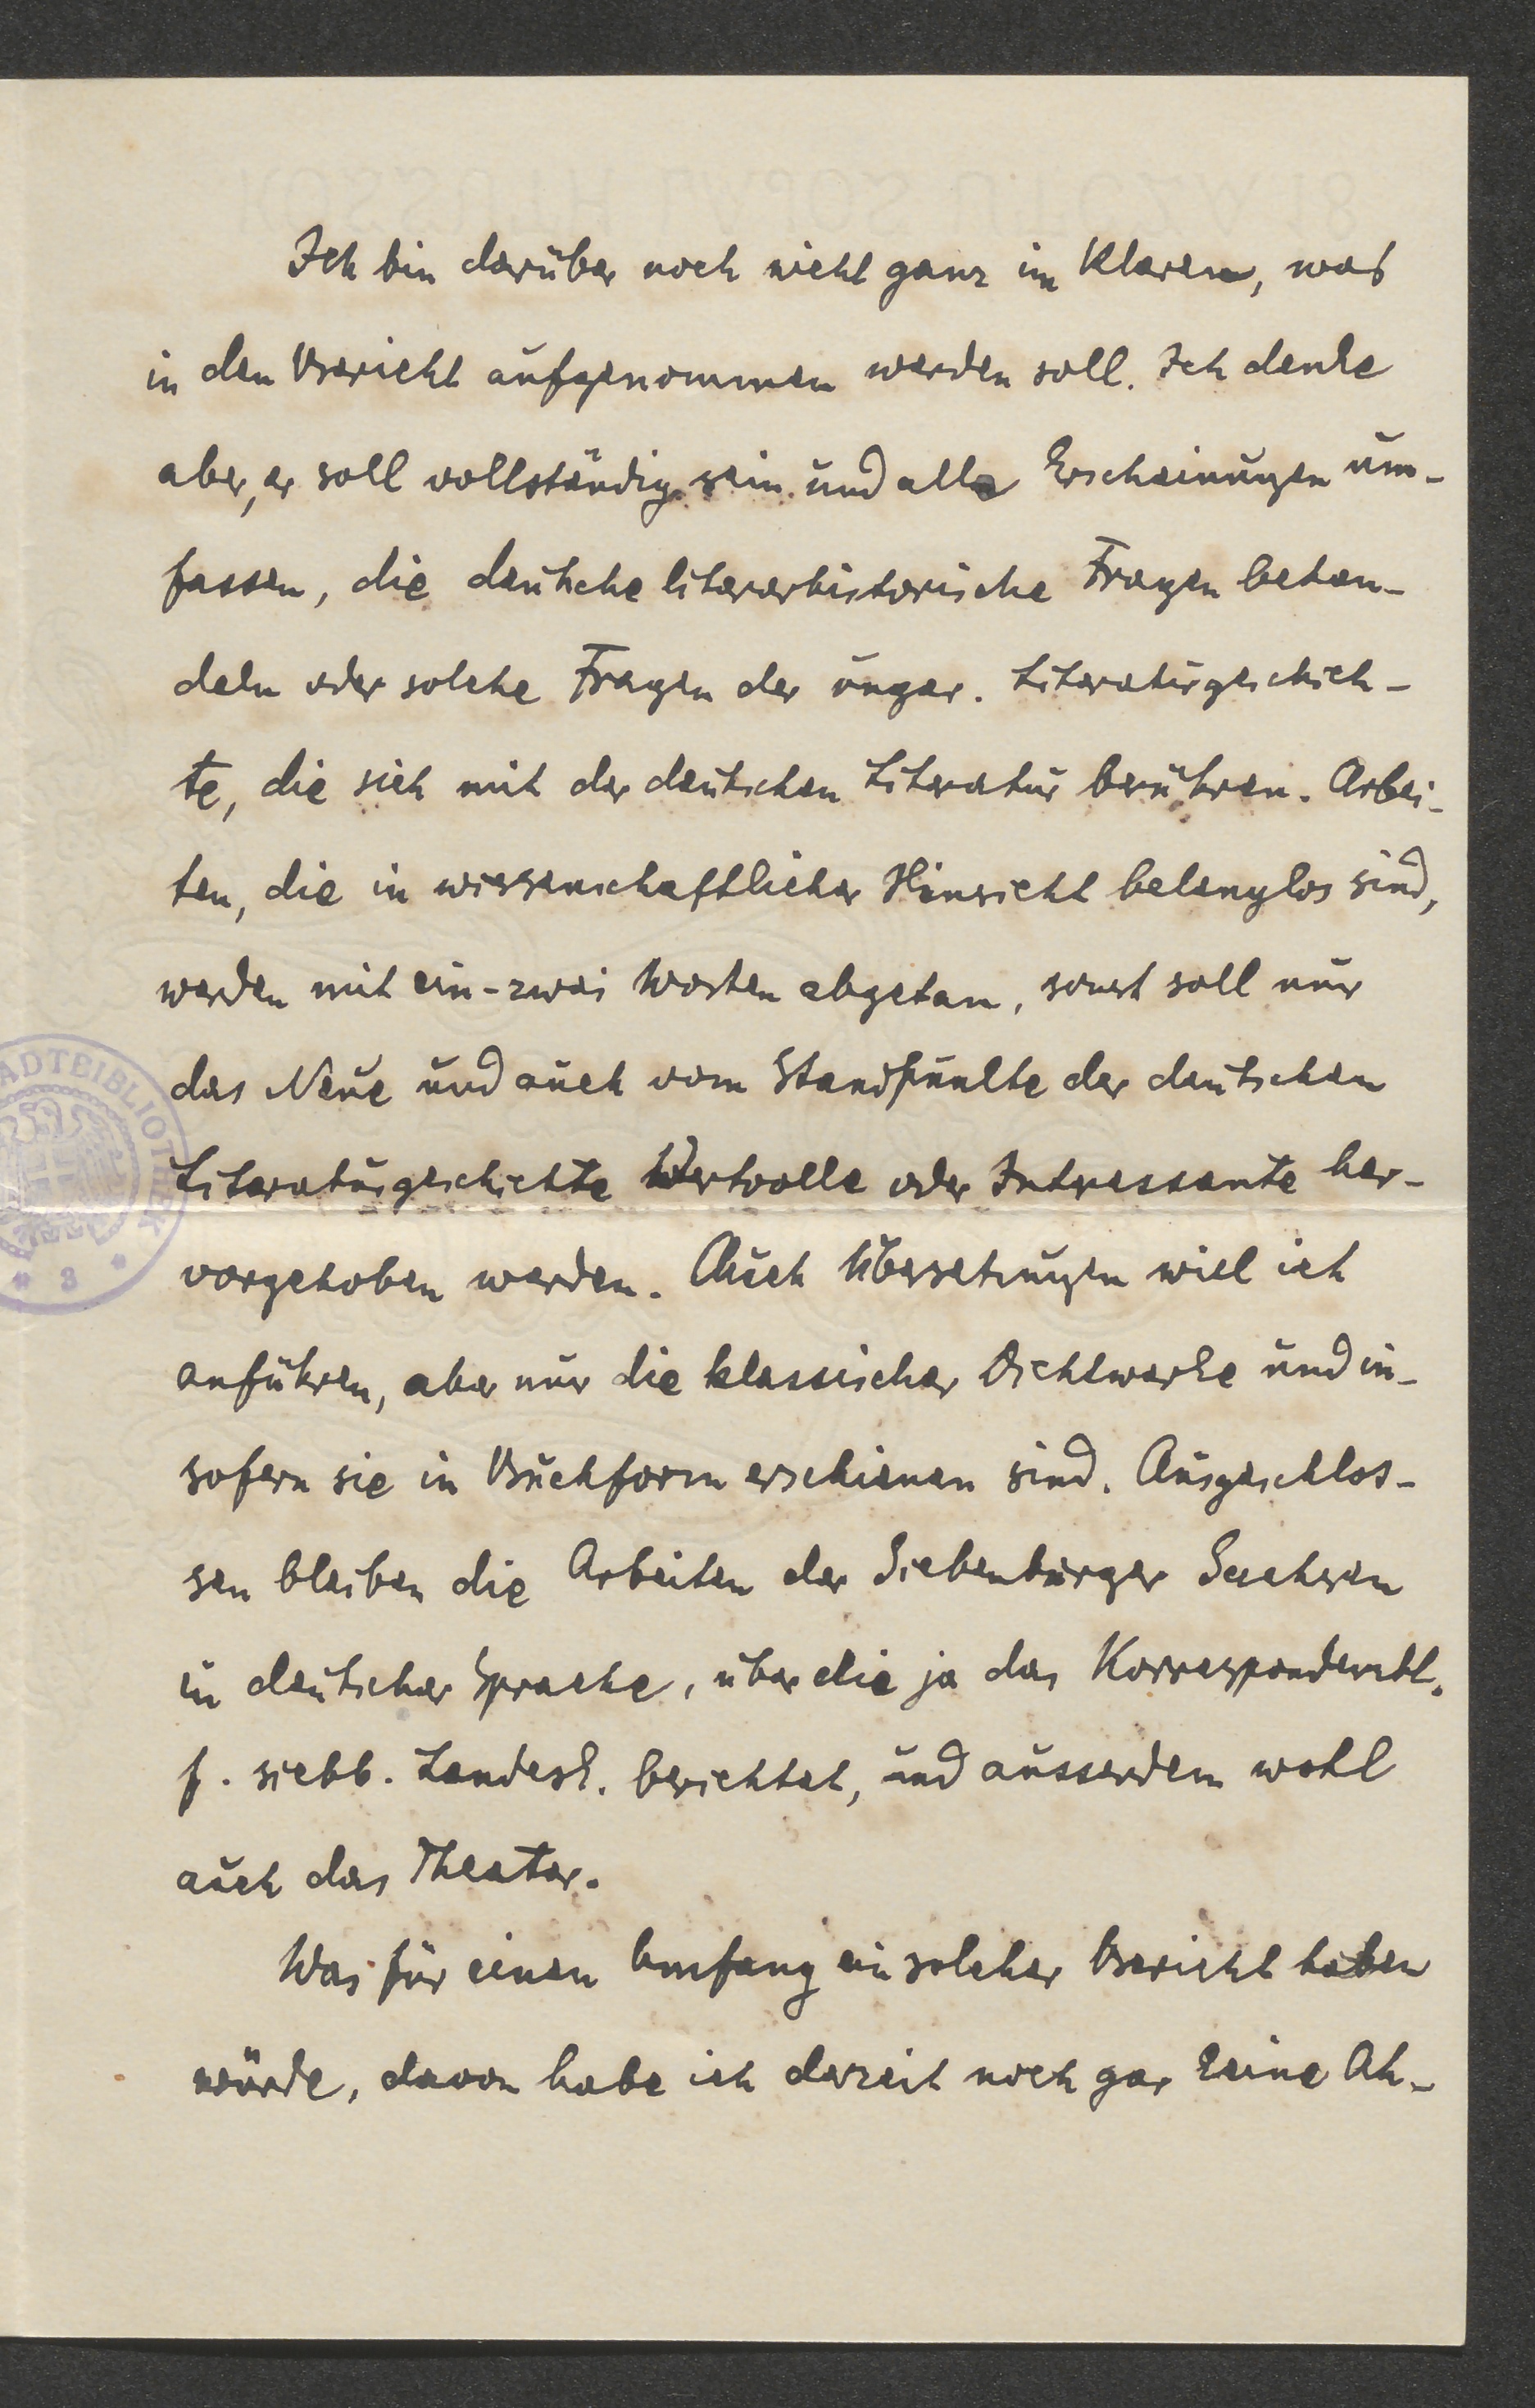 Ich bin darüber noch nicht ganz im Klaren, was
in den Bericht aufgenommen werden soll. Ich denke
aber, er soll vollständig sein und alle Erscheinungen um-
fassen, die deutsche literarhistorische Fragen behan-
deln oder solche Fragen der ungar. Literaturgeschich-
te, die sich mit der deutschen Literatur berühren. Arbei-
ten, die in wissenschaftlicher Hinsicht belanglos sind,
werden mit ein-zwei Worten abgetan, sonst soll nur
das Neue und auch vom Standpunkte der deutschen
Literaturgeschichte Wertvolle oder Intressante her-
vorgehoben werden. Auch Übersetzungen will ich
anführen, aber nur die klassischer Dichtwerke und in-
sofern sie in Buchform erschienen sind. Ausgeschlos-
sen bleiben die Arbeiten der Siebenbürger Sachsen
in deutscher Sprache, über die ja das Korrespondenzbl.
f. siebb. Landesk. berichtet, und ausserdem wohl
auch das Theater.
Was für einen Umfang ein solcher Bericht haben
würde, davon habe ich derzeit noch gar keine Ah-
ADTEIBLIOTHEK
* 3 *